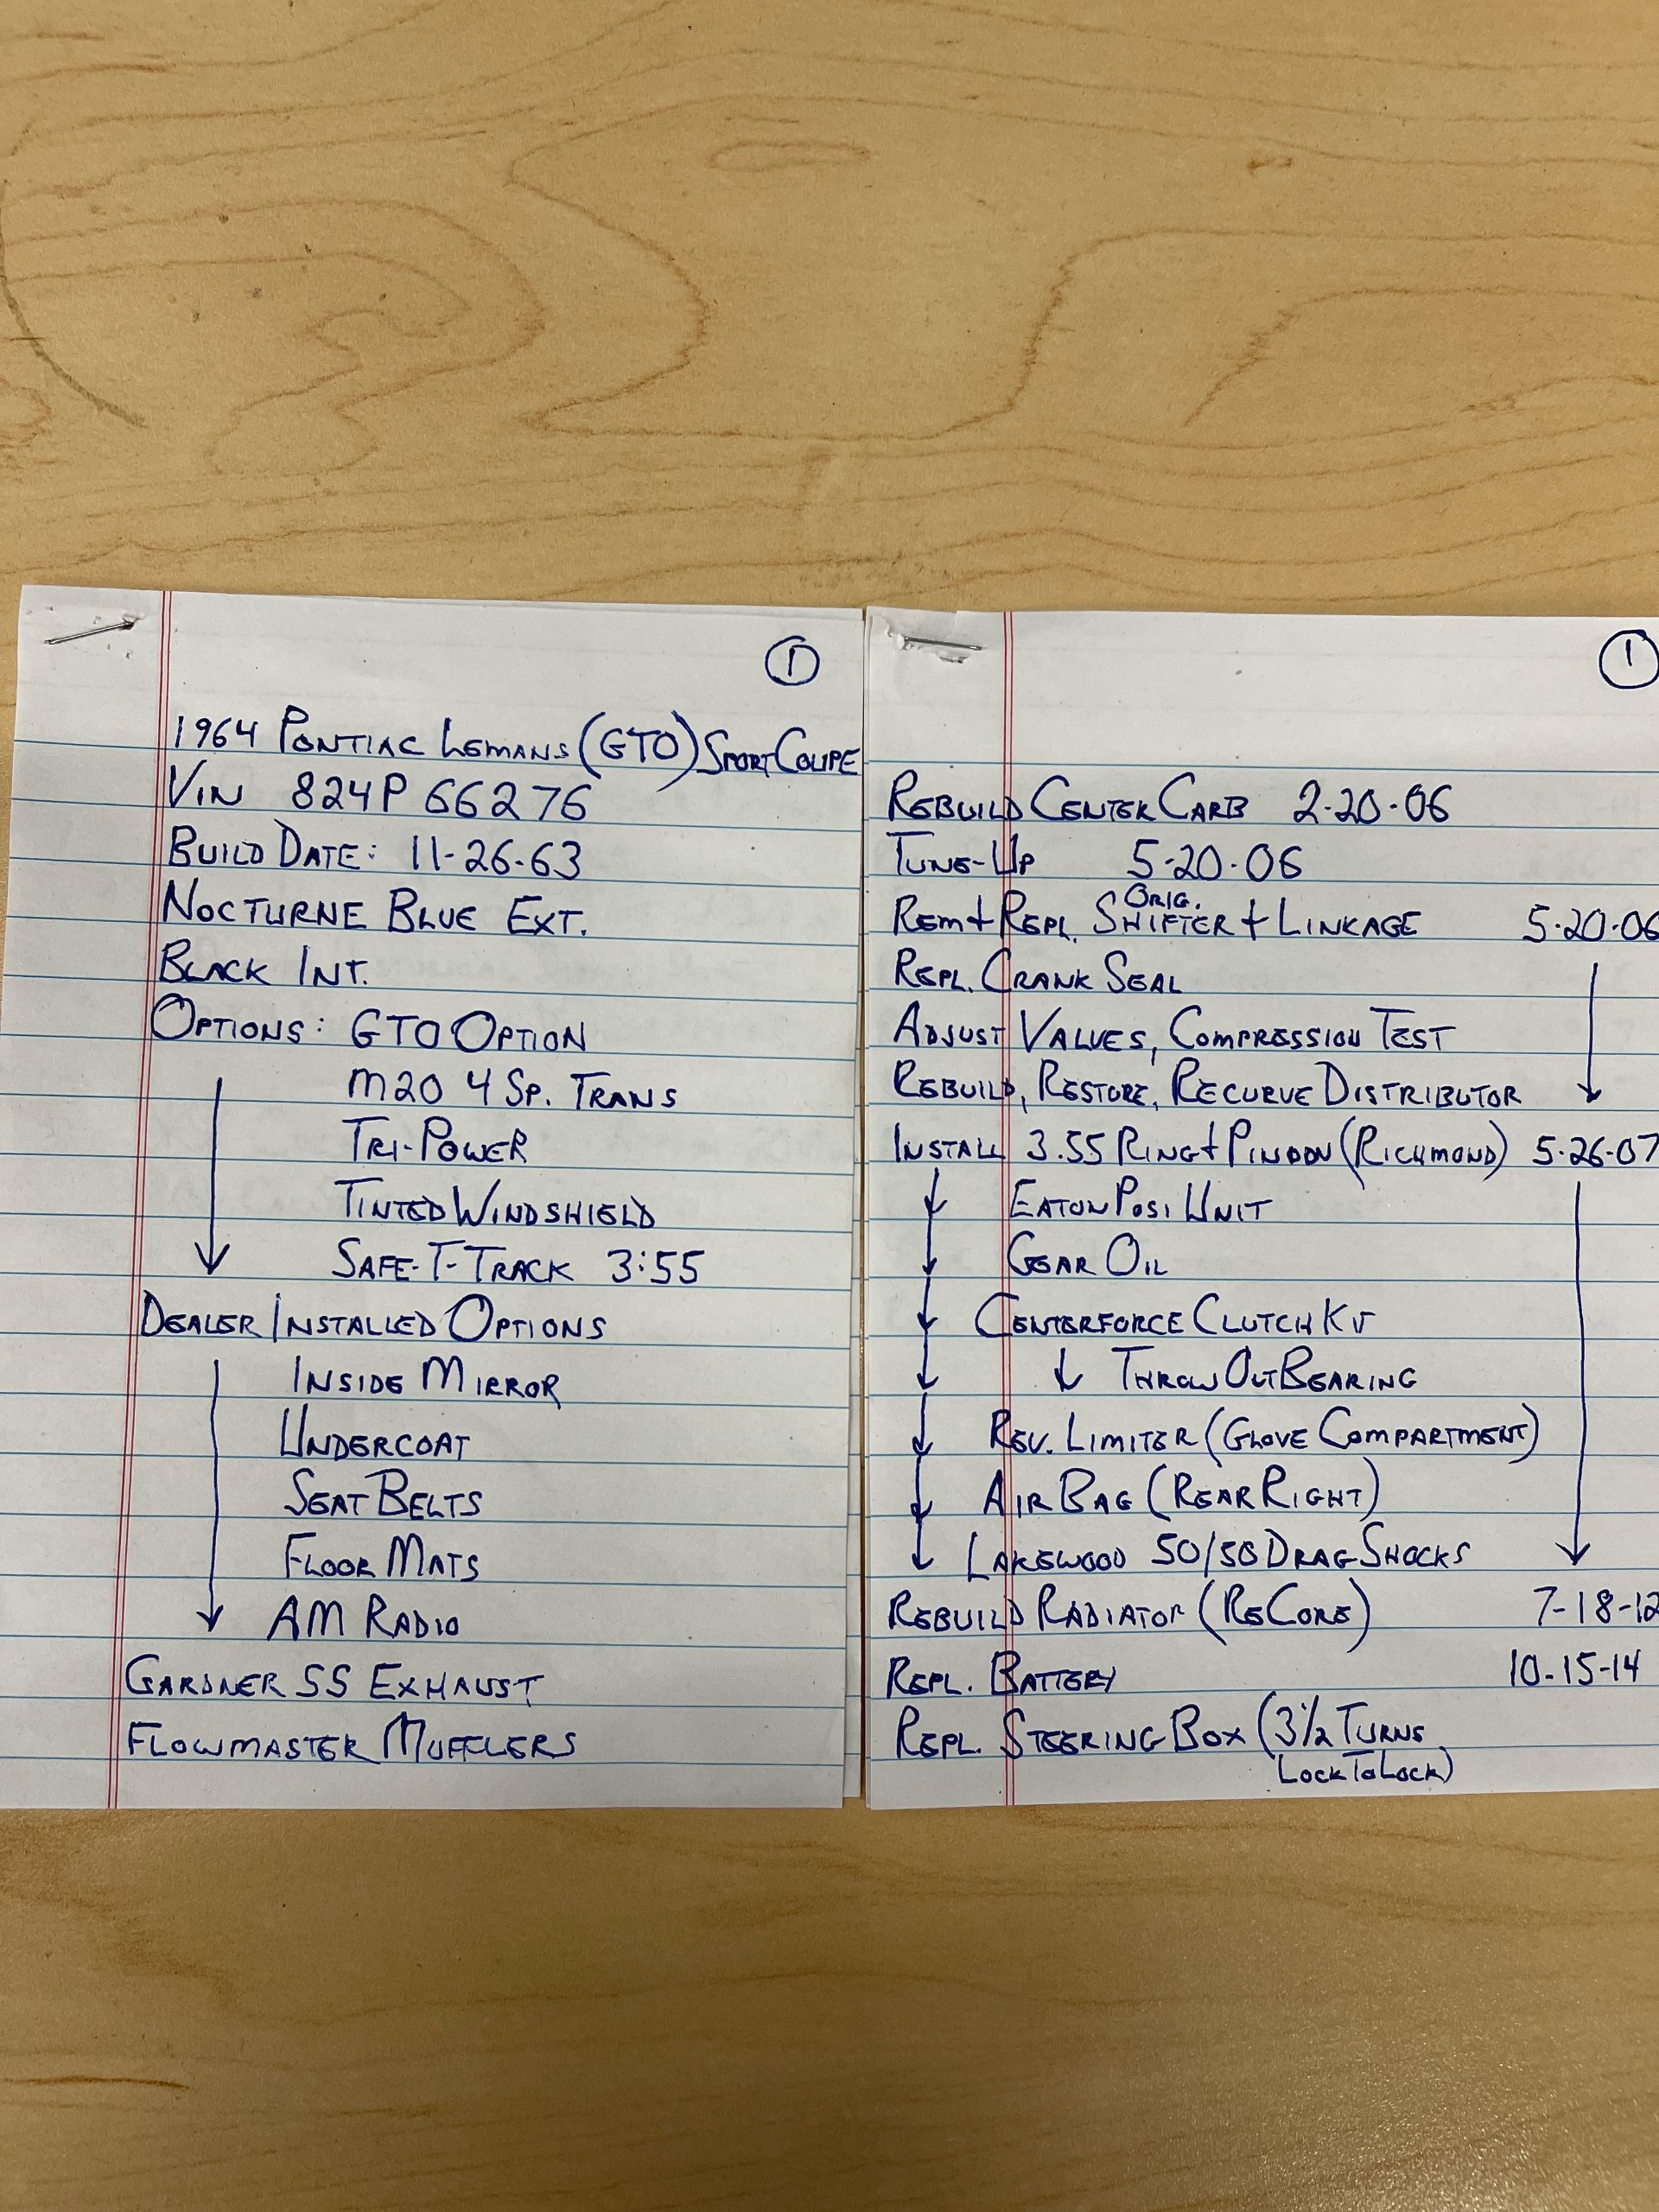 1
1964 PONTIAC LEMANS (GTO) SPORT COUPE
VIN 824P 66276
BUILD DATE: 11-26-63
NOCTURNE BLUE EXT.
BLACK INT.
OPTIONS: GTO OPTION
M20 4 SP. TRANS
TRI-POWER
TINTED WINDSHIELD
SAFE-T-TRACK 3:55
DEALER INSTALLED OPTIONS
INSIDE MIRROR
UNDERCOAT
SEAT BELTS
FLOOR MATS
AM RADIO
GARDNER SS EXHAUST
FLOWMASTER MUFFLERS
1
REBUILD CENTER CARB 2-20-06
TUNE-UP 5-20-06
REM + REPL. ORIG. SHIFTER + LINKAGE 5-20-06
REPL. CRANK SEAL
ADJUST VALVES, COMPRESSION TEST
REBUILD, RESTORE, RECURVE DISTRIBUTOR
INSTALL 3.55 RING + PINION (RICHMOND) 5-26-07
EATON POSI UNIT
GEAR OIL
CENTERFORCE CLUTCH KIT
THROW OUT BEARING
REV. LIMITER (GLOVE COMPARTMENT)
AIR BAG (REAR RIGHT)
LAKEWOOD 50/50 DRAG SHOCKS
REBUILD RADIATOR (RECORE) 7-18-12
REPL. BATTERY 10-15-14
REPL. STEERING BOX (3 1/2 TURNS
LOCK TO LOCK)